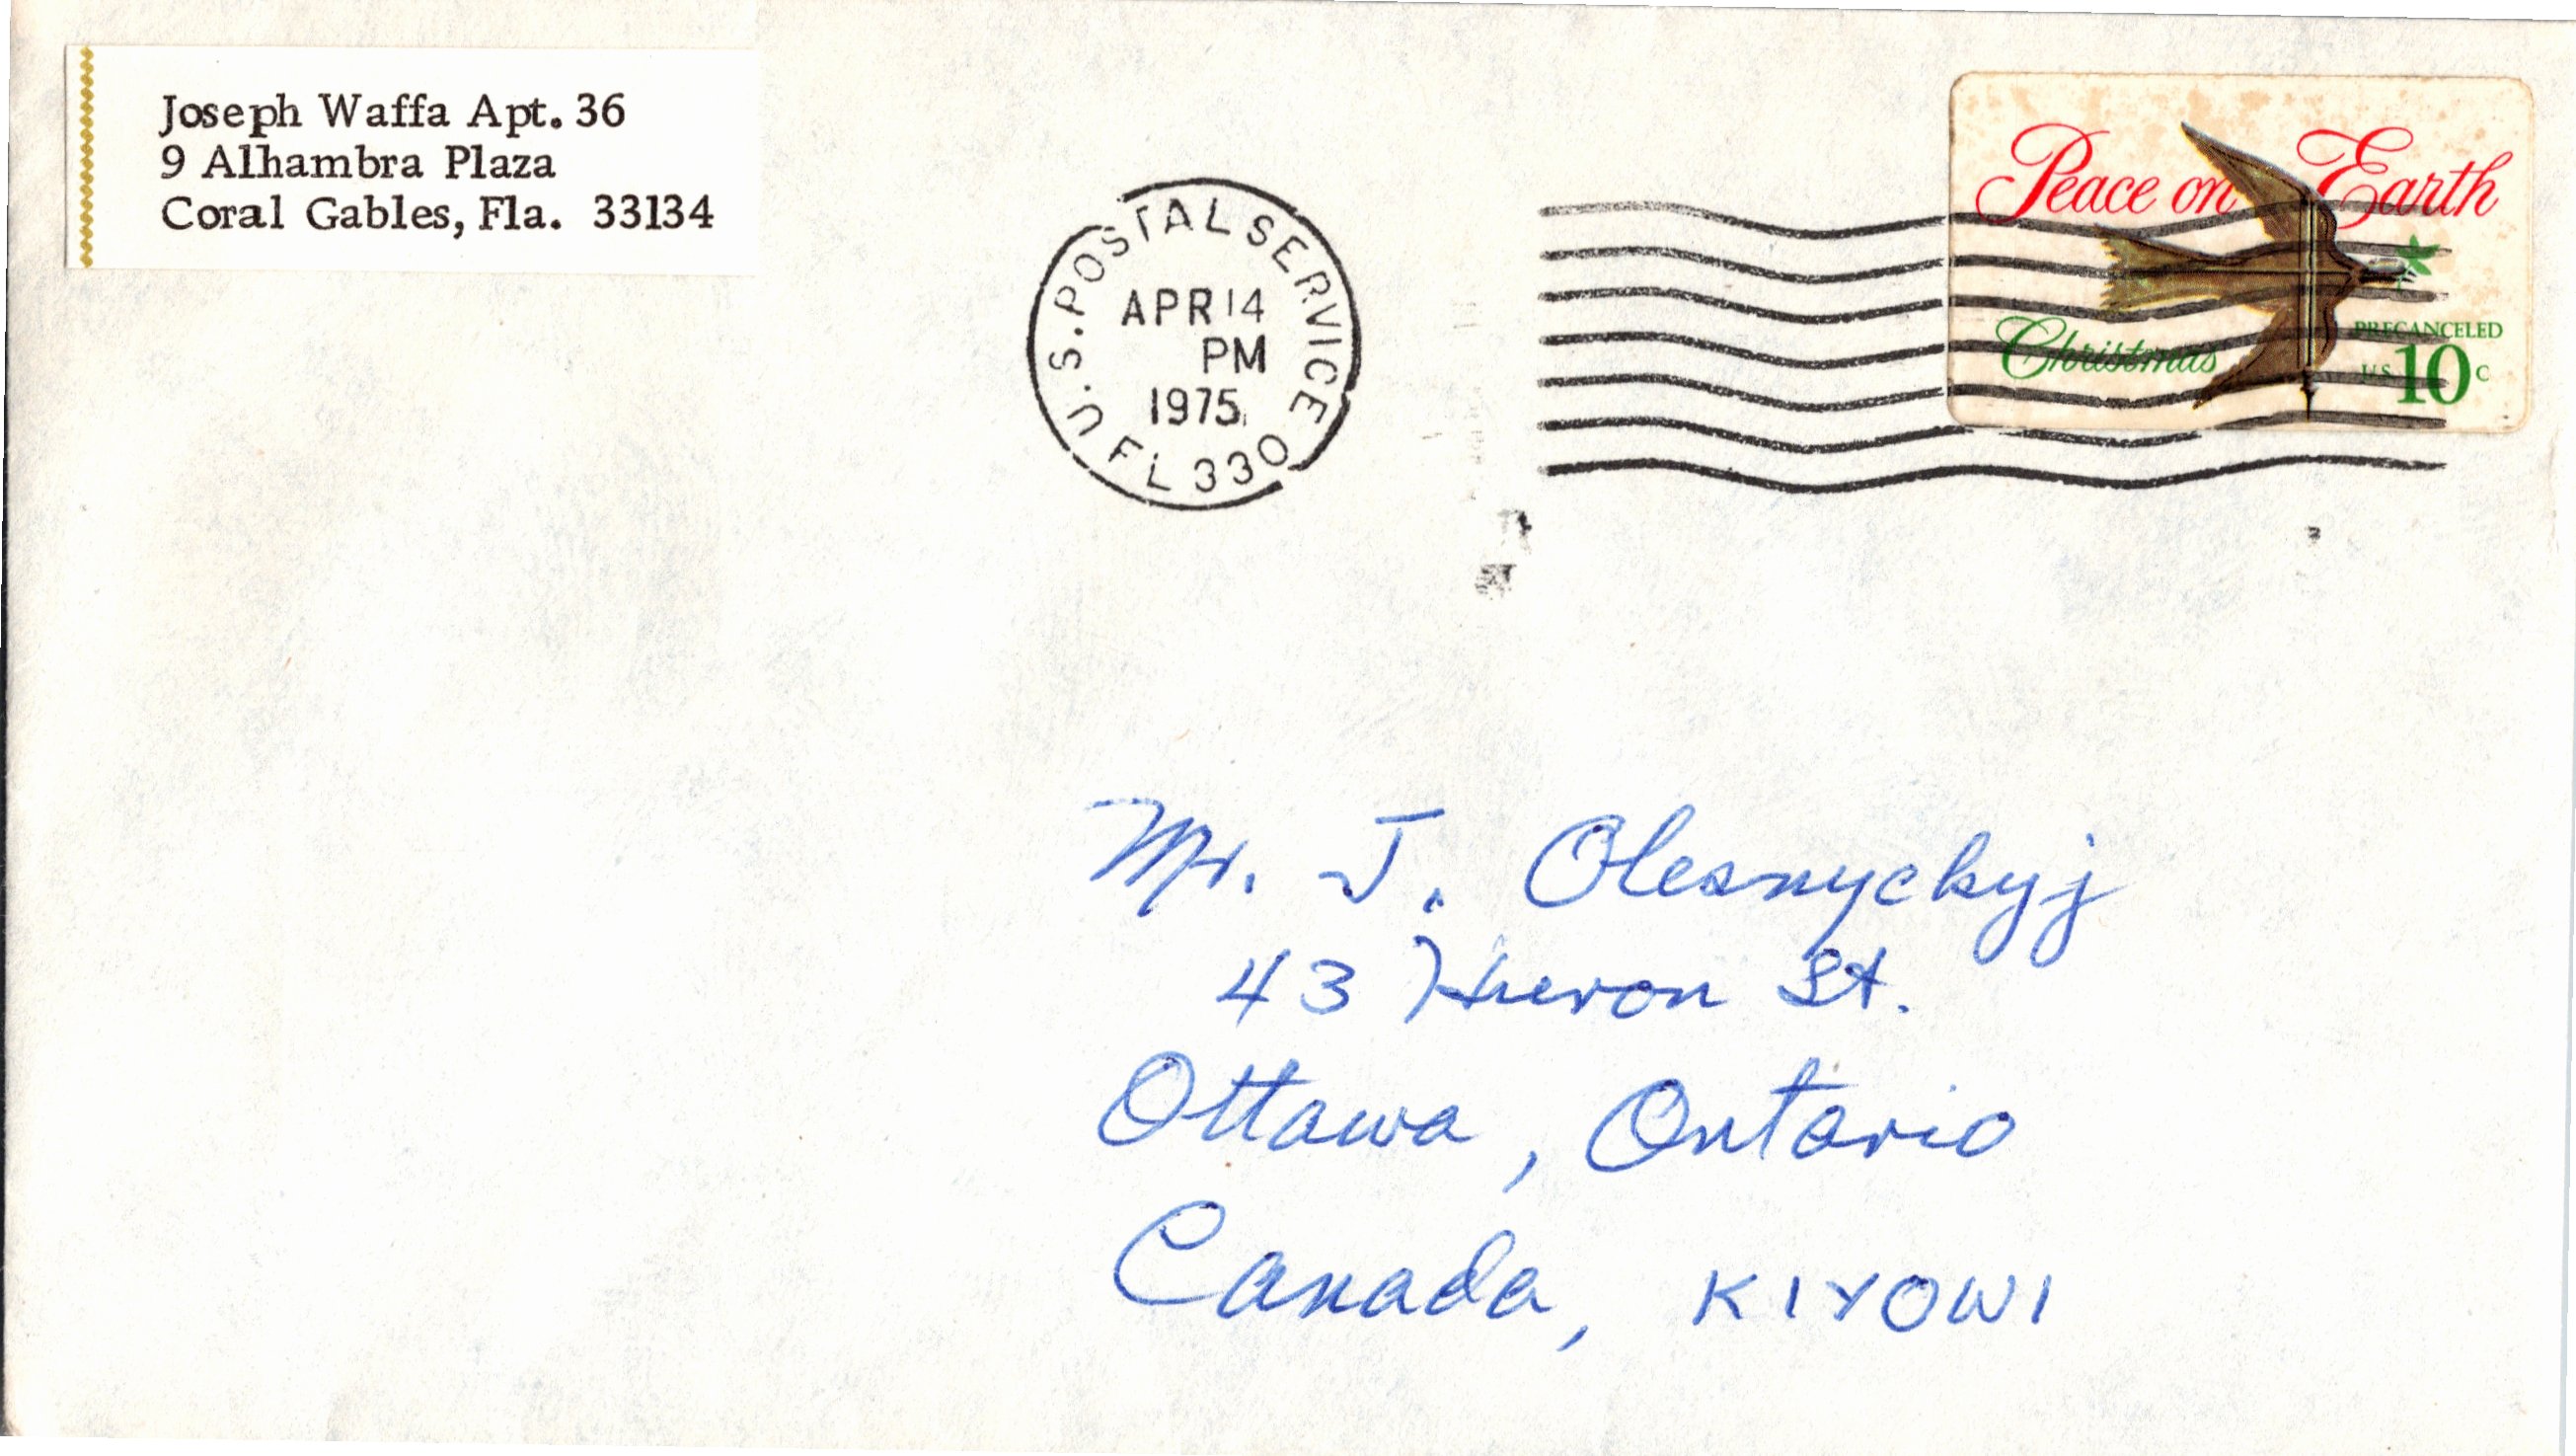 Joseph Waffa Apt. 36
9 Alhambra Plaza
Coral Gables, Fla. 33134
U.S. POSTAL SERVICE FL 330
APR 14
PM
1975
Peace on Earth
Christmas
PRECANCELED
US 10c
Mr. J. Olesnyckyj
43 Huron St.
Ottawa, Ontario
Canada, K1Y0W1